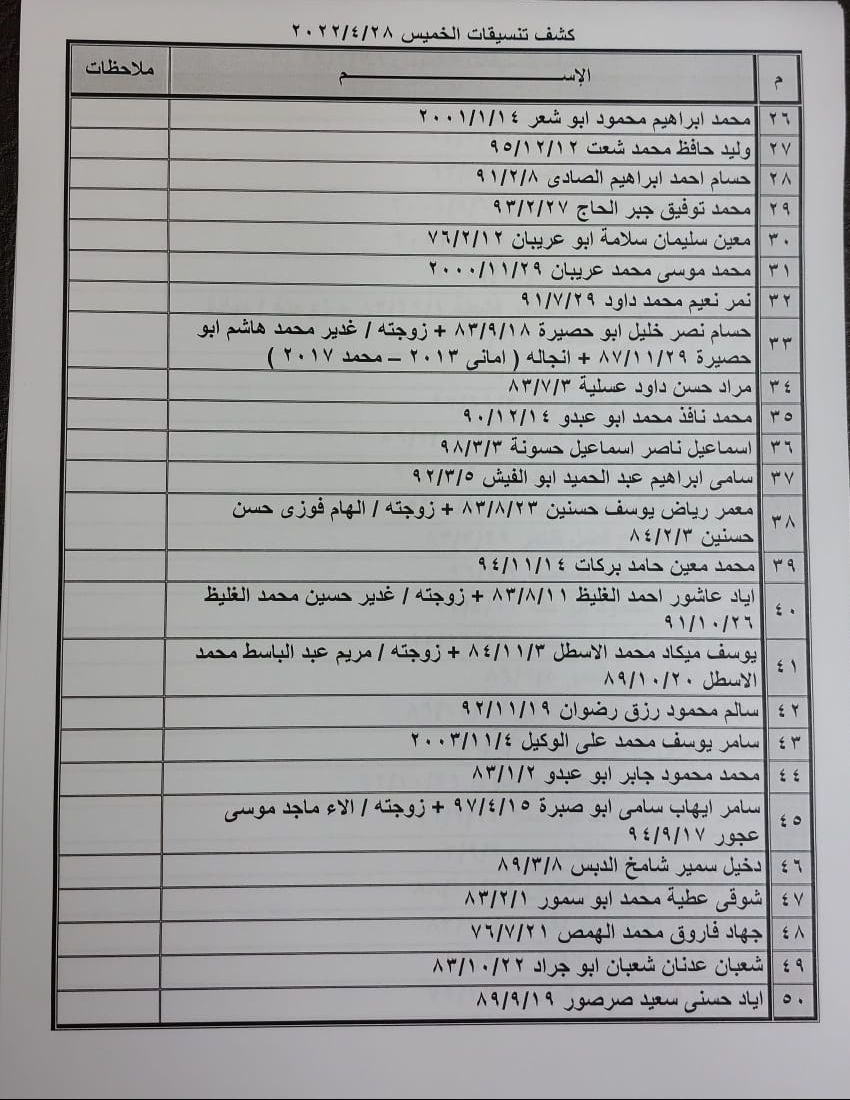 كشف تنسيقات الخميس ٢٠٢٢/٤/٢٨
م الإســـــــــــــم ملاحظات
٢٦ محمد ابراهيم محمود ابو شعر ٢٠٠١/١/١٤
٢٧ وليد حافظ محمد شعت ٩٥/١٢/١٢
٢٨ حسام احمد ابراهيم الصادى ٩١/٢/٨
٢٩ محمد توفيق جبر الحاج ٩٣/٢/٢٧
٣٠ معين سليمان سلامة ابو عريبان ٧٦/٢/١٢
٣١ محمد موسى محمد عريبان ٢٠٠٠/١١/٢٩
٣٢ نمر نعيم محمد داود ٩١/٧/٢٩
٣٣ حسام نصر خليل ابو حصيرة ٨٣/٩/١٨ + زوجته / غدير محمد هاشم ابو
حصيرة ٨٧/١١/٢٩ + انجاله ( امانى ٢٠١٣ – محمد ٢٠١٧ )
٣٤ مراد حسن داود عسلية ٨٣/٧/٣
٣٥ محمد نافذ محمد ابو عبدو ٩٠/١٢/١٤
٣٦ اسماعيل ناصر اسماعيل حسونة ٩٨/٣/٣
٣٧ سامى ابراهيم عبد الحميد ابو الفيش ٩٢/٣/٥
٣٨ معمر رياض يوسف حسنين ٨٣/٨/٢٣ + زوجته / الهام فوزى حسن
حسنين ٨٤/٢/٣
٣٩ محمد معين حامد بركات ٩٤/١١/١٤
٤٠ اياد عاشور احمد الغليظ ٨٣/٨/١١ + زوجته / غدير حسين محمد الغليظ
٩١/١٠/٢٦
٤١ يوسف ميكاد محمد الاسطل ٨٤/١١/٣ + زوجته / مريم عبد الباسط محمد
الاسطل ٨٩/١٠/٢٠
٤٢ سالم محمود رزق رضوان ٩٢/١١/١٩
٤٣ سامر يوسف محمد على الوكيل ٢٠٠٣/١١/٤
٤٤ محمد محمود جابر ابو عبدو ٨٣/١/٢
٤٥ سامر ايهاب سامى ابو صبرة ٩٧/٤/١٥ + زوجته / الاء ماجد موسى
عجور ٩٤/٩/١٧
٤٦ دخيل سمير شامخ الدبس ٨٩/٣/٨
٤٧ شوقى عطية محمد ابو سمور ٨٣/٢/١
٤٨ جهاد فاروق محمد الهمص ٧٦/٧/٢١
٤٩ شعبان عدنان شعبان ابو جراد ٨٣/١٠/٢٢
٥٠ اياد حسنى سعيد صرصور ٨٩/٩/١٩